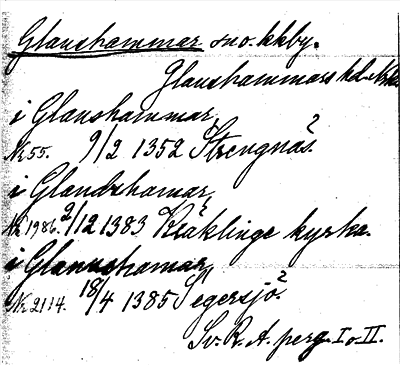 Glanshammar sno. kkby.
Glanshammars hd. Nke
i Glanshammar
Nr 55. 9/2 1352 Strengnäs.²
i Glandzhamar
Nr 1986. 2/12 1383 Kräklinge kyrka.
i Glanushamar
Nr 2114. 18/4 1385 Segersjö.²
Sv. R. A. perg. I o. II.